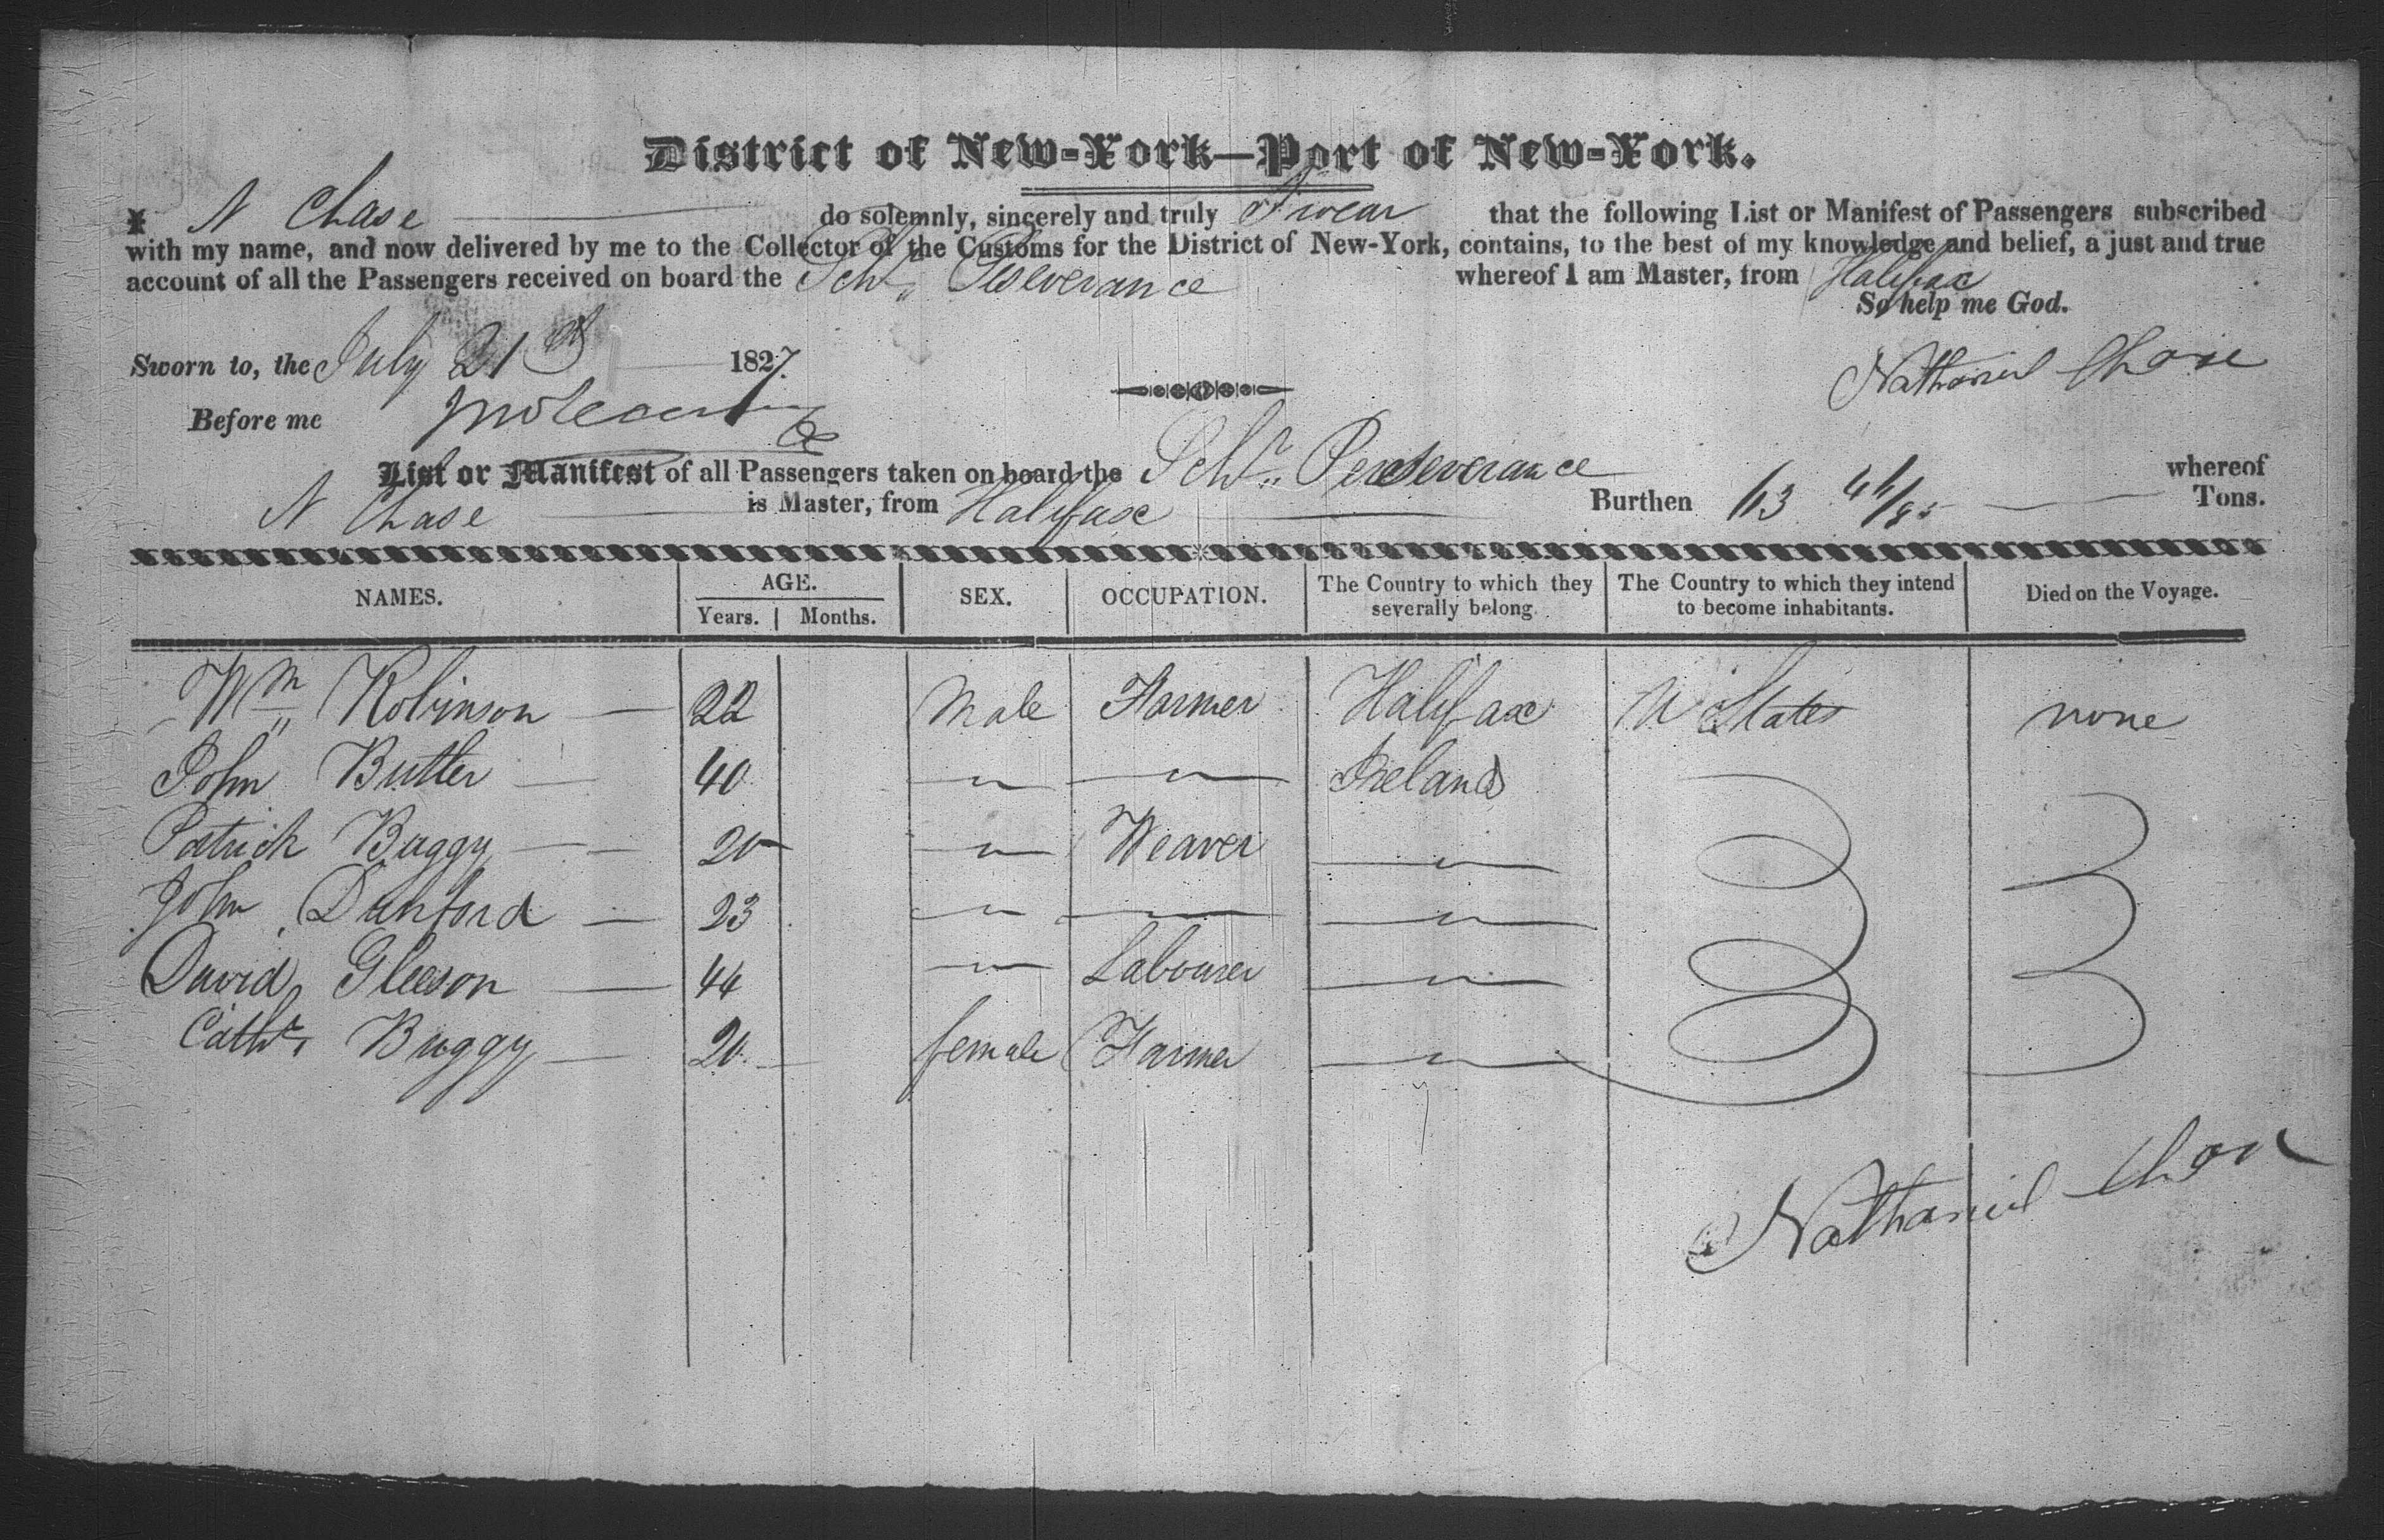 District of New-York—Port of New-York.
I N Chase do solemnly, sincerely and truly Swear that the following List or Manifest of Passengers subscribed
with my name, and now delivered by me to the Collector of the Customs for the District of New-York, contains, to the best of my knowledge and belief, a just and true
account of all the Passengers received on board the Schr. Perseverance whereof I am Master, from Halifax
So help me God.
Sworn to, the July 21st 1827.
Nathaniel Chase
Before me
List or Manifest of all Passengers taken on board the Schr. Perseverance whereof
N Chase is Master, from Halifax Burthen 113 44/95 Tons.
NAMES. AGE. SEX. OCCUPATION. The Country to which they severally belong. The Country to which they intend to become inhabitants. Died on the Voyage.
Years. Months.
Wm Robinson 22 Male Farmer Halifax U States none
John Butler 40 " " Ireland
Patrick Buggy 20 " Weaver "
John Danford 23 " " "
David Gleeson 44 " Labourer "
Cathe. Buggy 20 female Farmer "
Nathaniel Chase